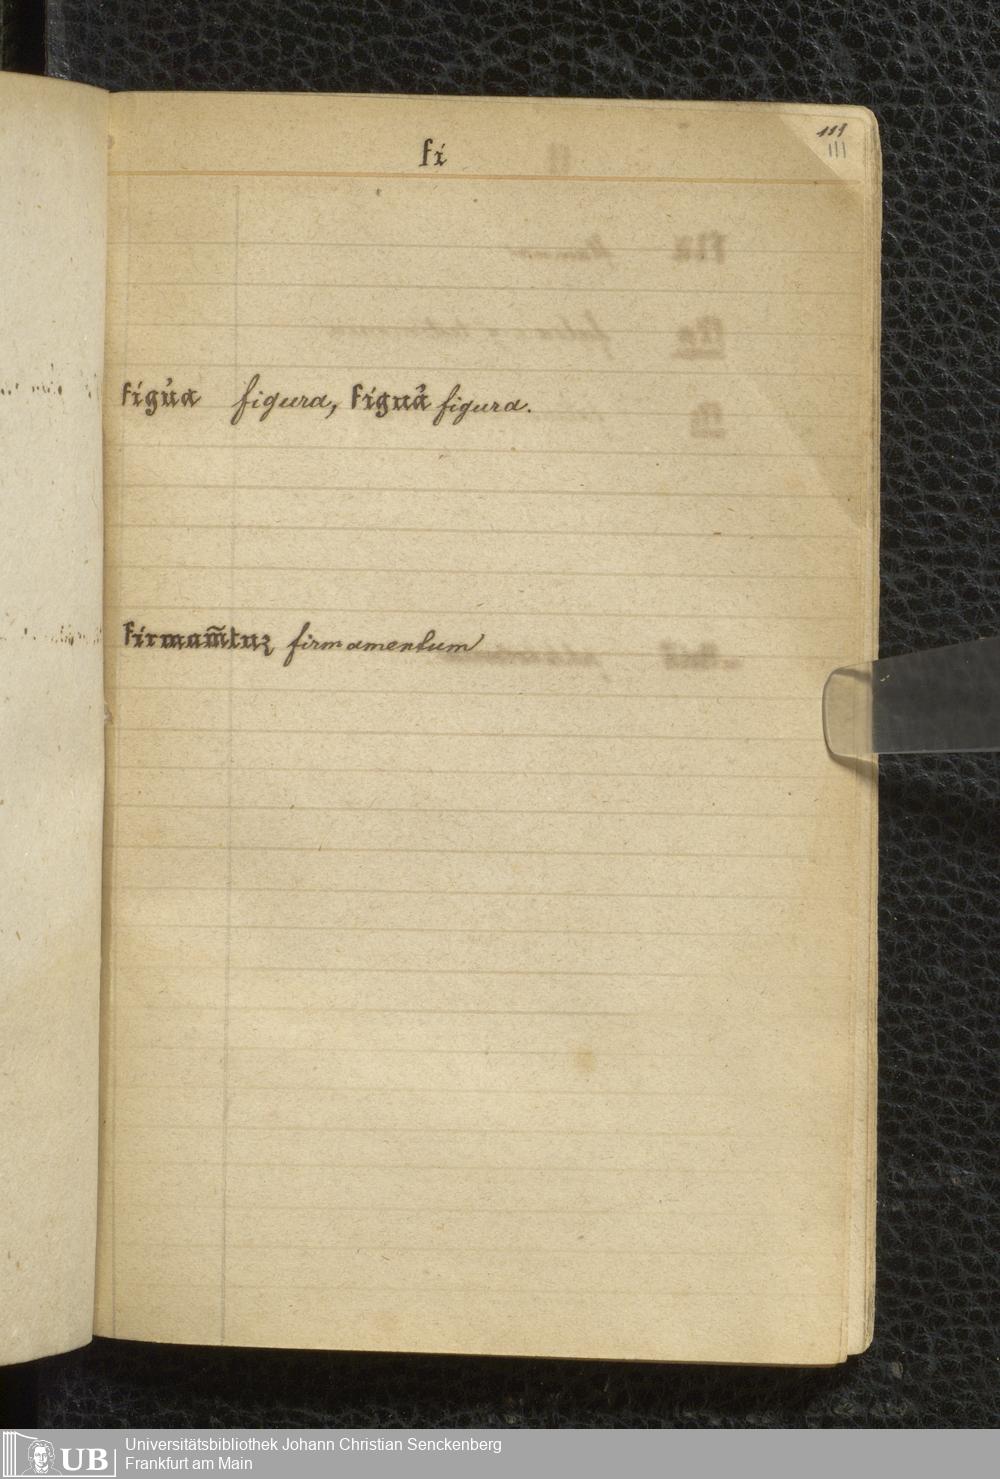 111
111
fi
figu̾a figura, figua̾ figura.
firmam̃tuꝫ firmamentum
UB Universitätsbibliothek Johann Christian Senckenberg
Frankfurt am Main